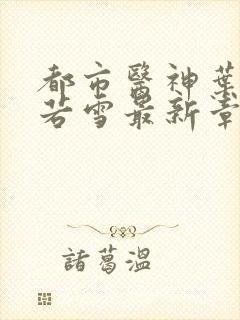 都市醫神葉
若雪最新章
諸葛溫